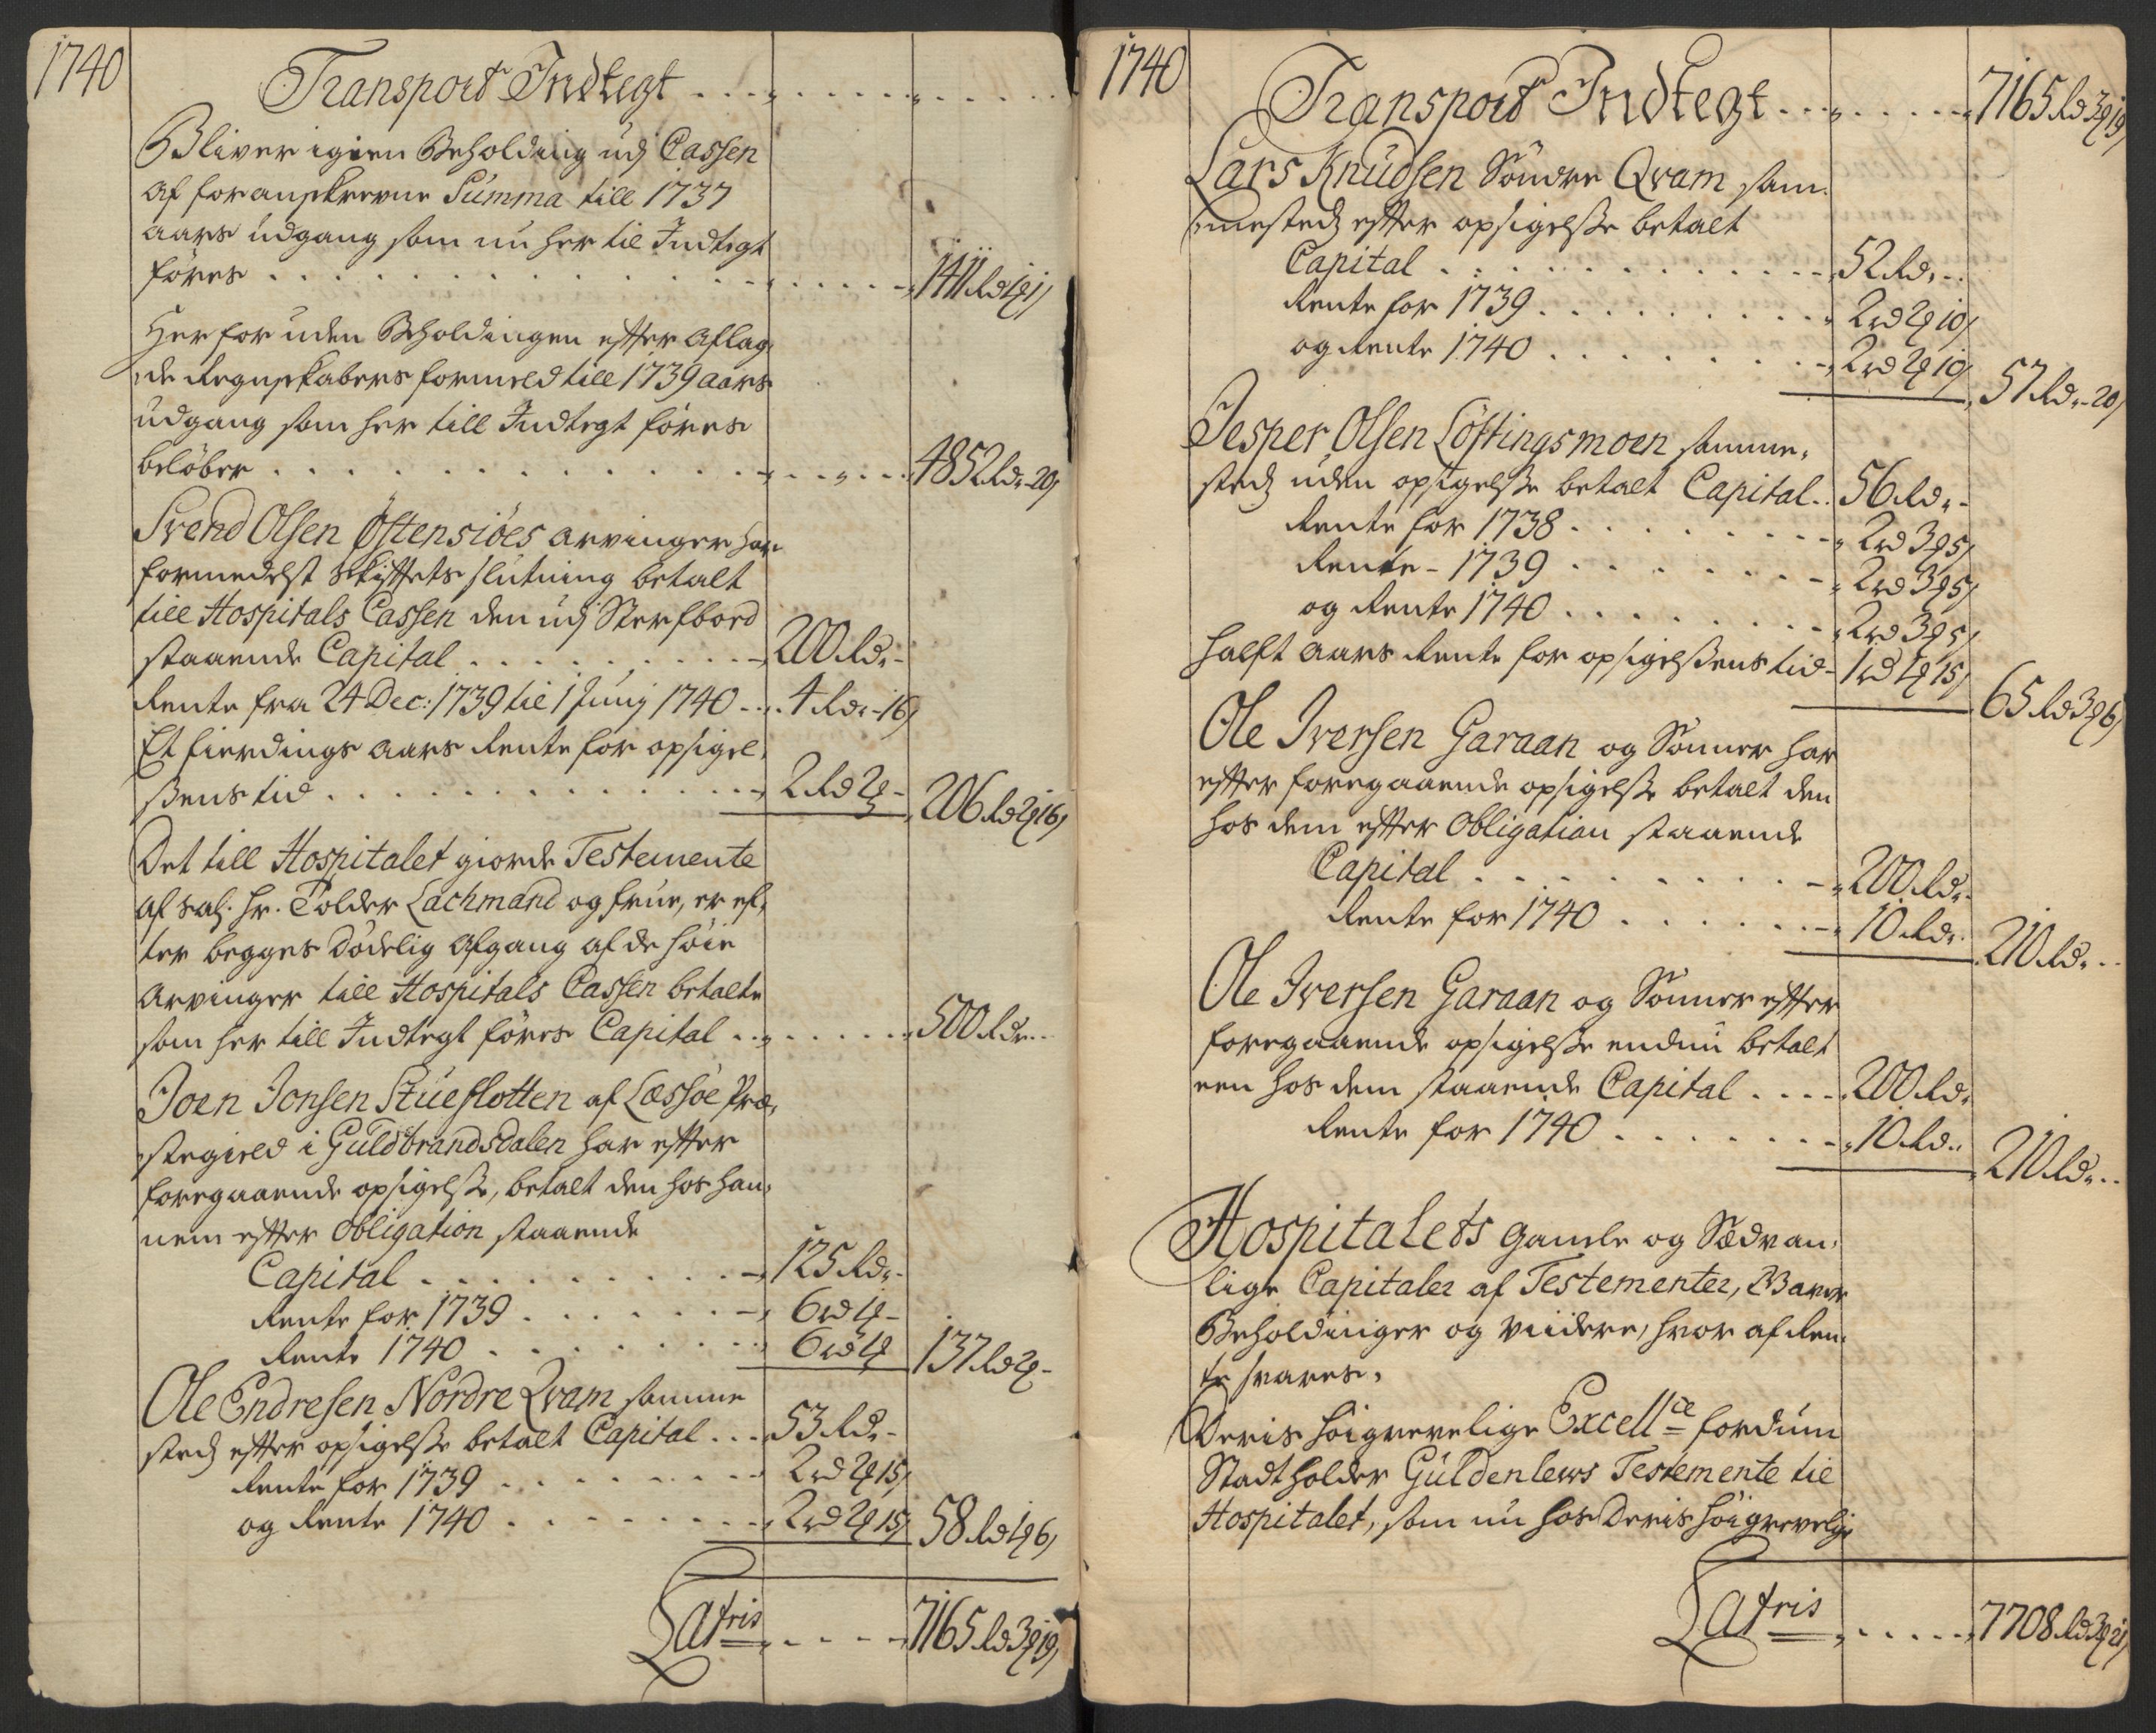 1740
Transport Indtegt
Bliver igien Beholding udj Cassen
af foranskrevne Summa till 1737
aars udgang som nu her til Indtegt
føres 1411 Rd 1 ꝗ 1 s
Her foruden Beholdingen efter aflag-
de Regnskabers formeld till 1739 aars
udgang som her till Indtegt føres
beløber 4852 Rd - 20 s
Svend Olsen Østensiøes arvinger har
formedelst Skifftets slutning betalt
till Hospitals Cassen den udj Sterfbord
staaende Capital 200 Rd -
Rente fra 24 Dec: 1739 til 1 Junij 1740 4 Rd - 16 s
Et fierdings aars Rente for opsigel-
ßens tid 2 Rd 2 ꝗ - 206 Rd 2 ꝗ 16 s
Det till Hospitalet giorde Testemente
af Sal. Hr. Tolder Lachmand og frue, er ef-
ter begges Dødelig afgang af de høie
arvinger till Hospitals Cassen betalte
som her till Indtegt føres Capital 500 Rd
Joen Jonsen Stueflotten af Læssøe Præ-
stegield i Guldbrandsdalen har efter
foregaaende opsigelße, betalt den hos han-
nem efter Obligation staaende
Capital 125 Rd -
Rente for 1739 6 rd 1 ꝗ -
Rente 1740 6 rd 1 ꝗ 137 Rd 2 ꝗ -
Ole Endresen Nordre Qvam samme
stedz efter opsigelße betalt Capital 53 Rd -
Rente for 1739 2 rd 2 ꝗ 15 s
og Rente 1740 2 rd 2 ꝗ 15 s 58 Rd 1 ꝗ 6 s
Latris 7165 Rd 3 ꝗ 19 s
1740
Transport Indtegt 7165 Rd 3 ꝗ 19 s
Lars Knudsen Søndre Qvam sam-
mestedz efter opsigelße betalt
Capital 52 Rd -
Rente for 1739 2 rd 2 ꝗ 10 s
og Rente 1740 2 rd 2 ꝗ 10 s 57 Rd - 20 s
Jesper Olsen Löftingsmoen samme-
stedz uden opsigelße betalt Capital 56 Rd -
Rente for 1738 2 rd 3 ꝗ 5 s
Rente - 1739 2 rd 3 ꝗ 5 s
og Rente 1740 2 rd 3 ꝗ 5 s
halft aars Rente for opsigelßens tid 1 rd 1 ꝗ 15 s 65 Rd 3 ꝗ 6 s
Ole Iversen Garaan og Sønner har
efter foregaaende opsigelße betalt den
hos dem efter Obligation staaende
Capital 200 Rd -
Rente for 1740 10 Rd - 210 Rd
Ole Iversen Garaan og Sønner efter
foregaaende opsigelße endnu betalt
een hos dem staaende Capital 200 Rd -
Rente for 1740 10 Rd 210 Rd
Hospitalets gamle og Sædvan-
lige Capitaler af Testementer, Gaver
Beholdinger og viidere, hvor af Ren-
te svares.
Deris høigrevelige Excellce fordum
Stadtholder Güldenlews Testemente til
Hospitalet, som nu hos Deris høigrevelige
Latris 7708 Rd 3 ꝗ 21 s